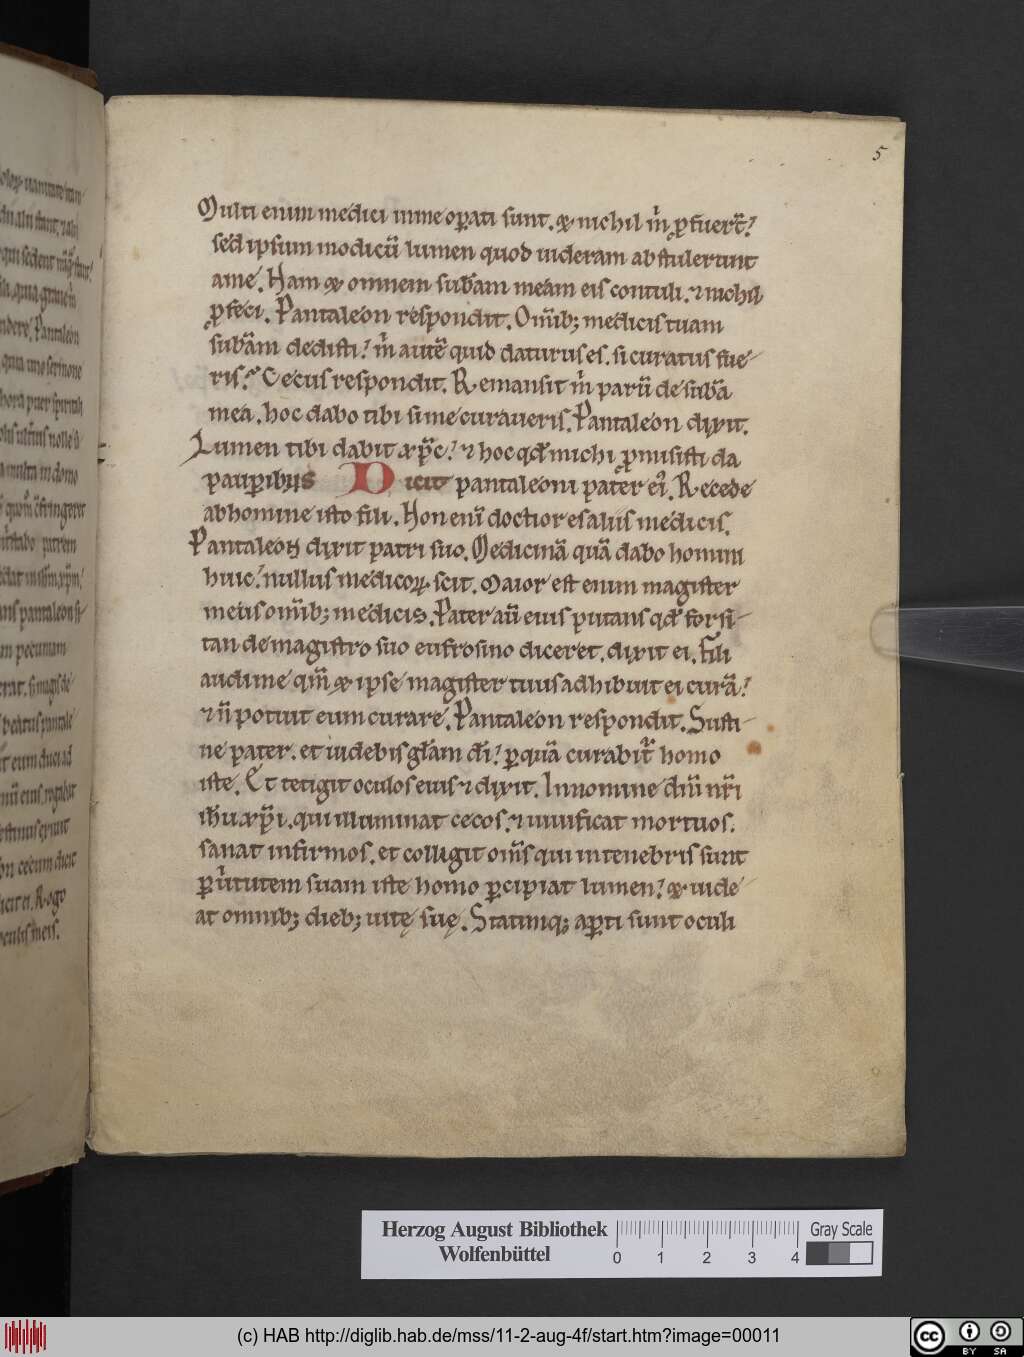 5
Multi enim medici in me opati sunt. & nichil m̅ pfuert̅!
sed ipsum modicū lumen quod uideram abstulerunt
a me. Nam & omnem subam meam eis contuli. ⁊ nichil
pfeci. Pantaleon respondit. Omīb; medicis tuam
subam dedisti! m̅ autē quid daturus es. si curatus fue
ris? Cecus respondit. Remansit m̅ parū de suba
mea. hoc dabo tibi si me curaueris. Pantaleon dixit.
Lumen tibi dabit xp̅c! ⁊ hoc qd michi pmisisti da
paupibus Dicit pantaleoni pater ei. Recede
ab homine isto fili. Non eni̅ doctior es aliis medicis.
Pantaleon dixit patri suo. Medicinā quā dabo homini
huic! nullus medicoꝝ scit. Maior est enim magister
meus omīb; medicis. Pater aū eius putans qd forsi
tan de magistro suo eufrosino diceret. dixit ei. Fili
audi me qm̅ & ipse magister tuus adhibuit ei curā!
⁊ n̅ potuit eum curare. Pantaleon respondit. Susti
ne pater. et uidebis glam di! p quā curabit̅ homo
iste. Et tetigit oculos eius ⁊ dixit. In nomine dn̅i nr̅i
ihu xp̅i. qui illuminat cecos. ⁊ uiuificat mortuos.
sanat infirmos. et colligit oms qui in tenebris sunt
p uirtutem suam iste homo pcipiat lumen! & uide
at omnib; dieb; uitę suę. Statimq; apti sunt oculi
Herzog August Bibliothek
Wolfenbüttel
0 1 2 3 4
Gray Scale
(c) HAB http://diglib.hab.de/mss/11-2-aug-4f/start.htm?image=00011
cc BY SA